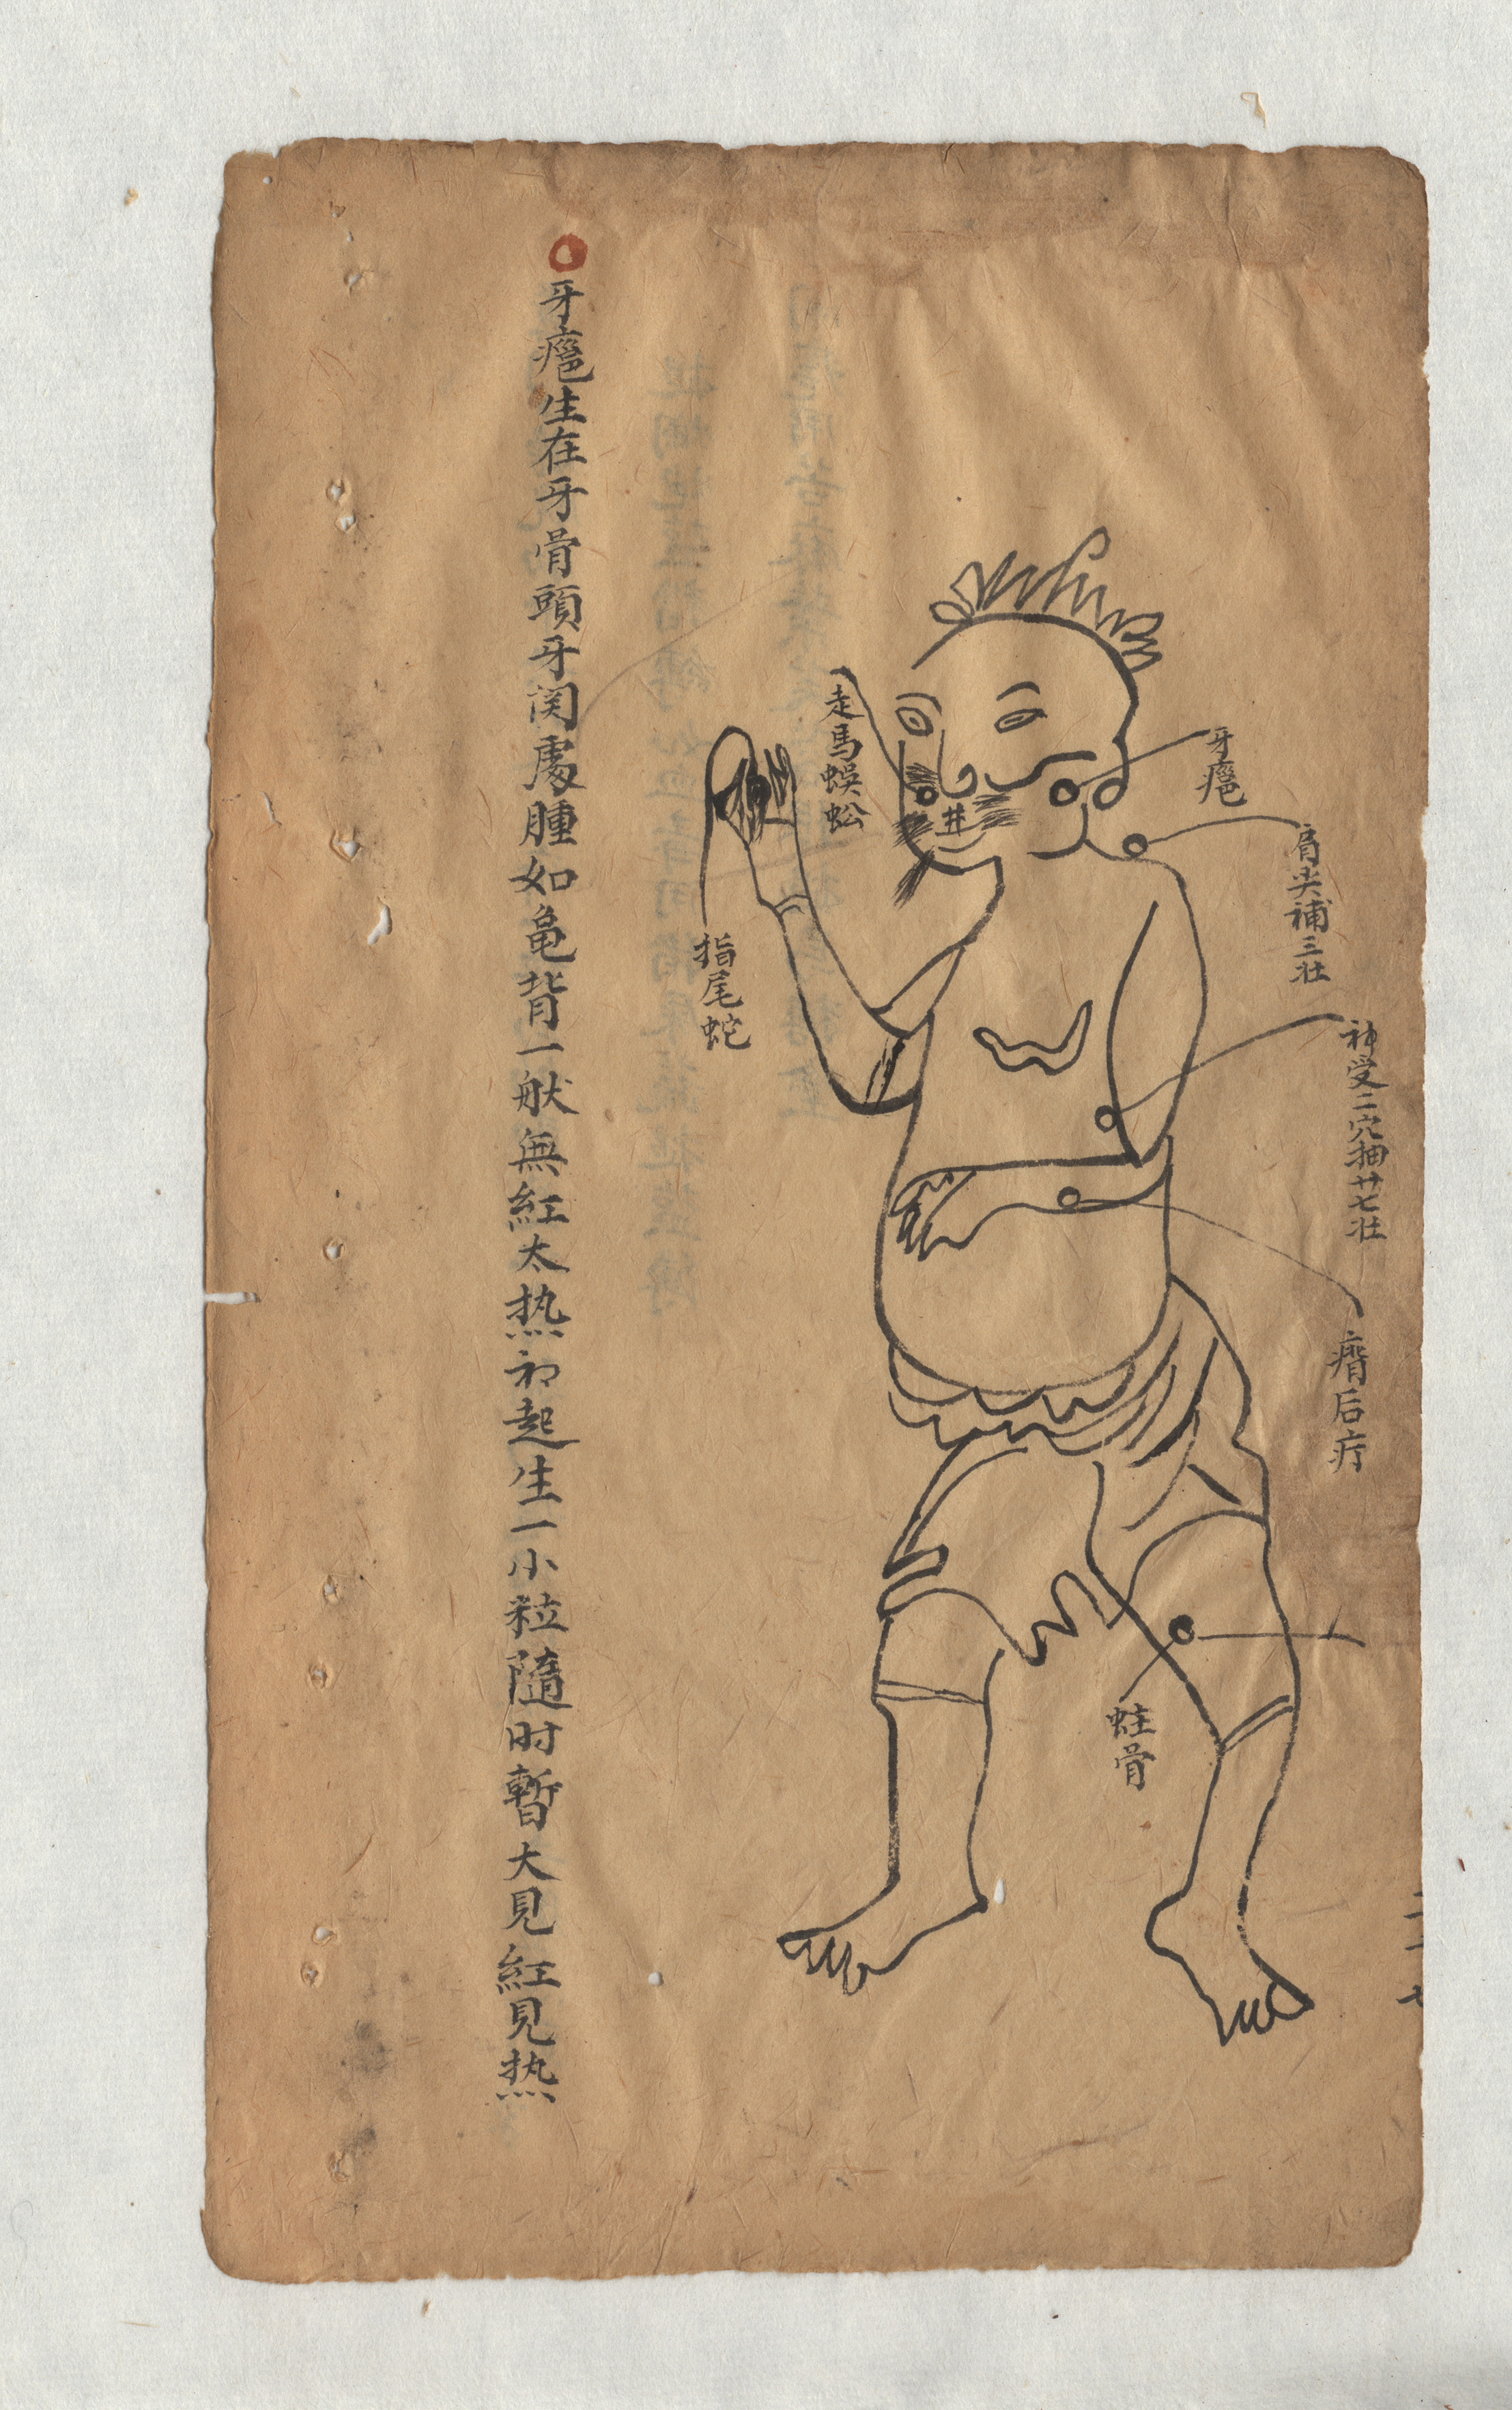 神受二穴抽廿七壮
瘠后疔
肩尖補三壮
牙癰
蛀骨
走馬蜈蚣
指尾蛇
牙癰生在牙骨頭牙関處腫如亀背一般無紅太热初起生一小粒隨时暫大見紅見热